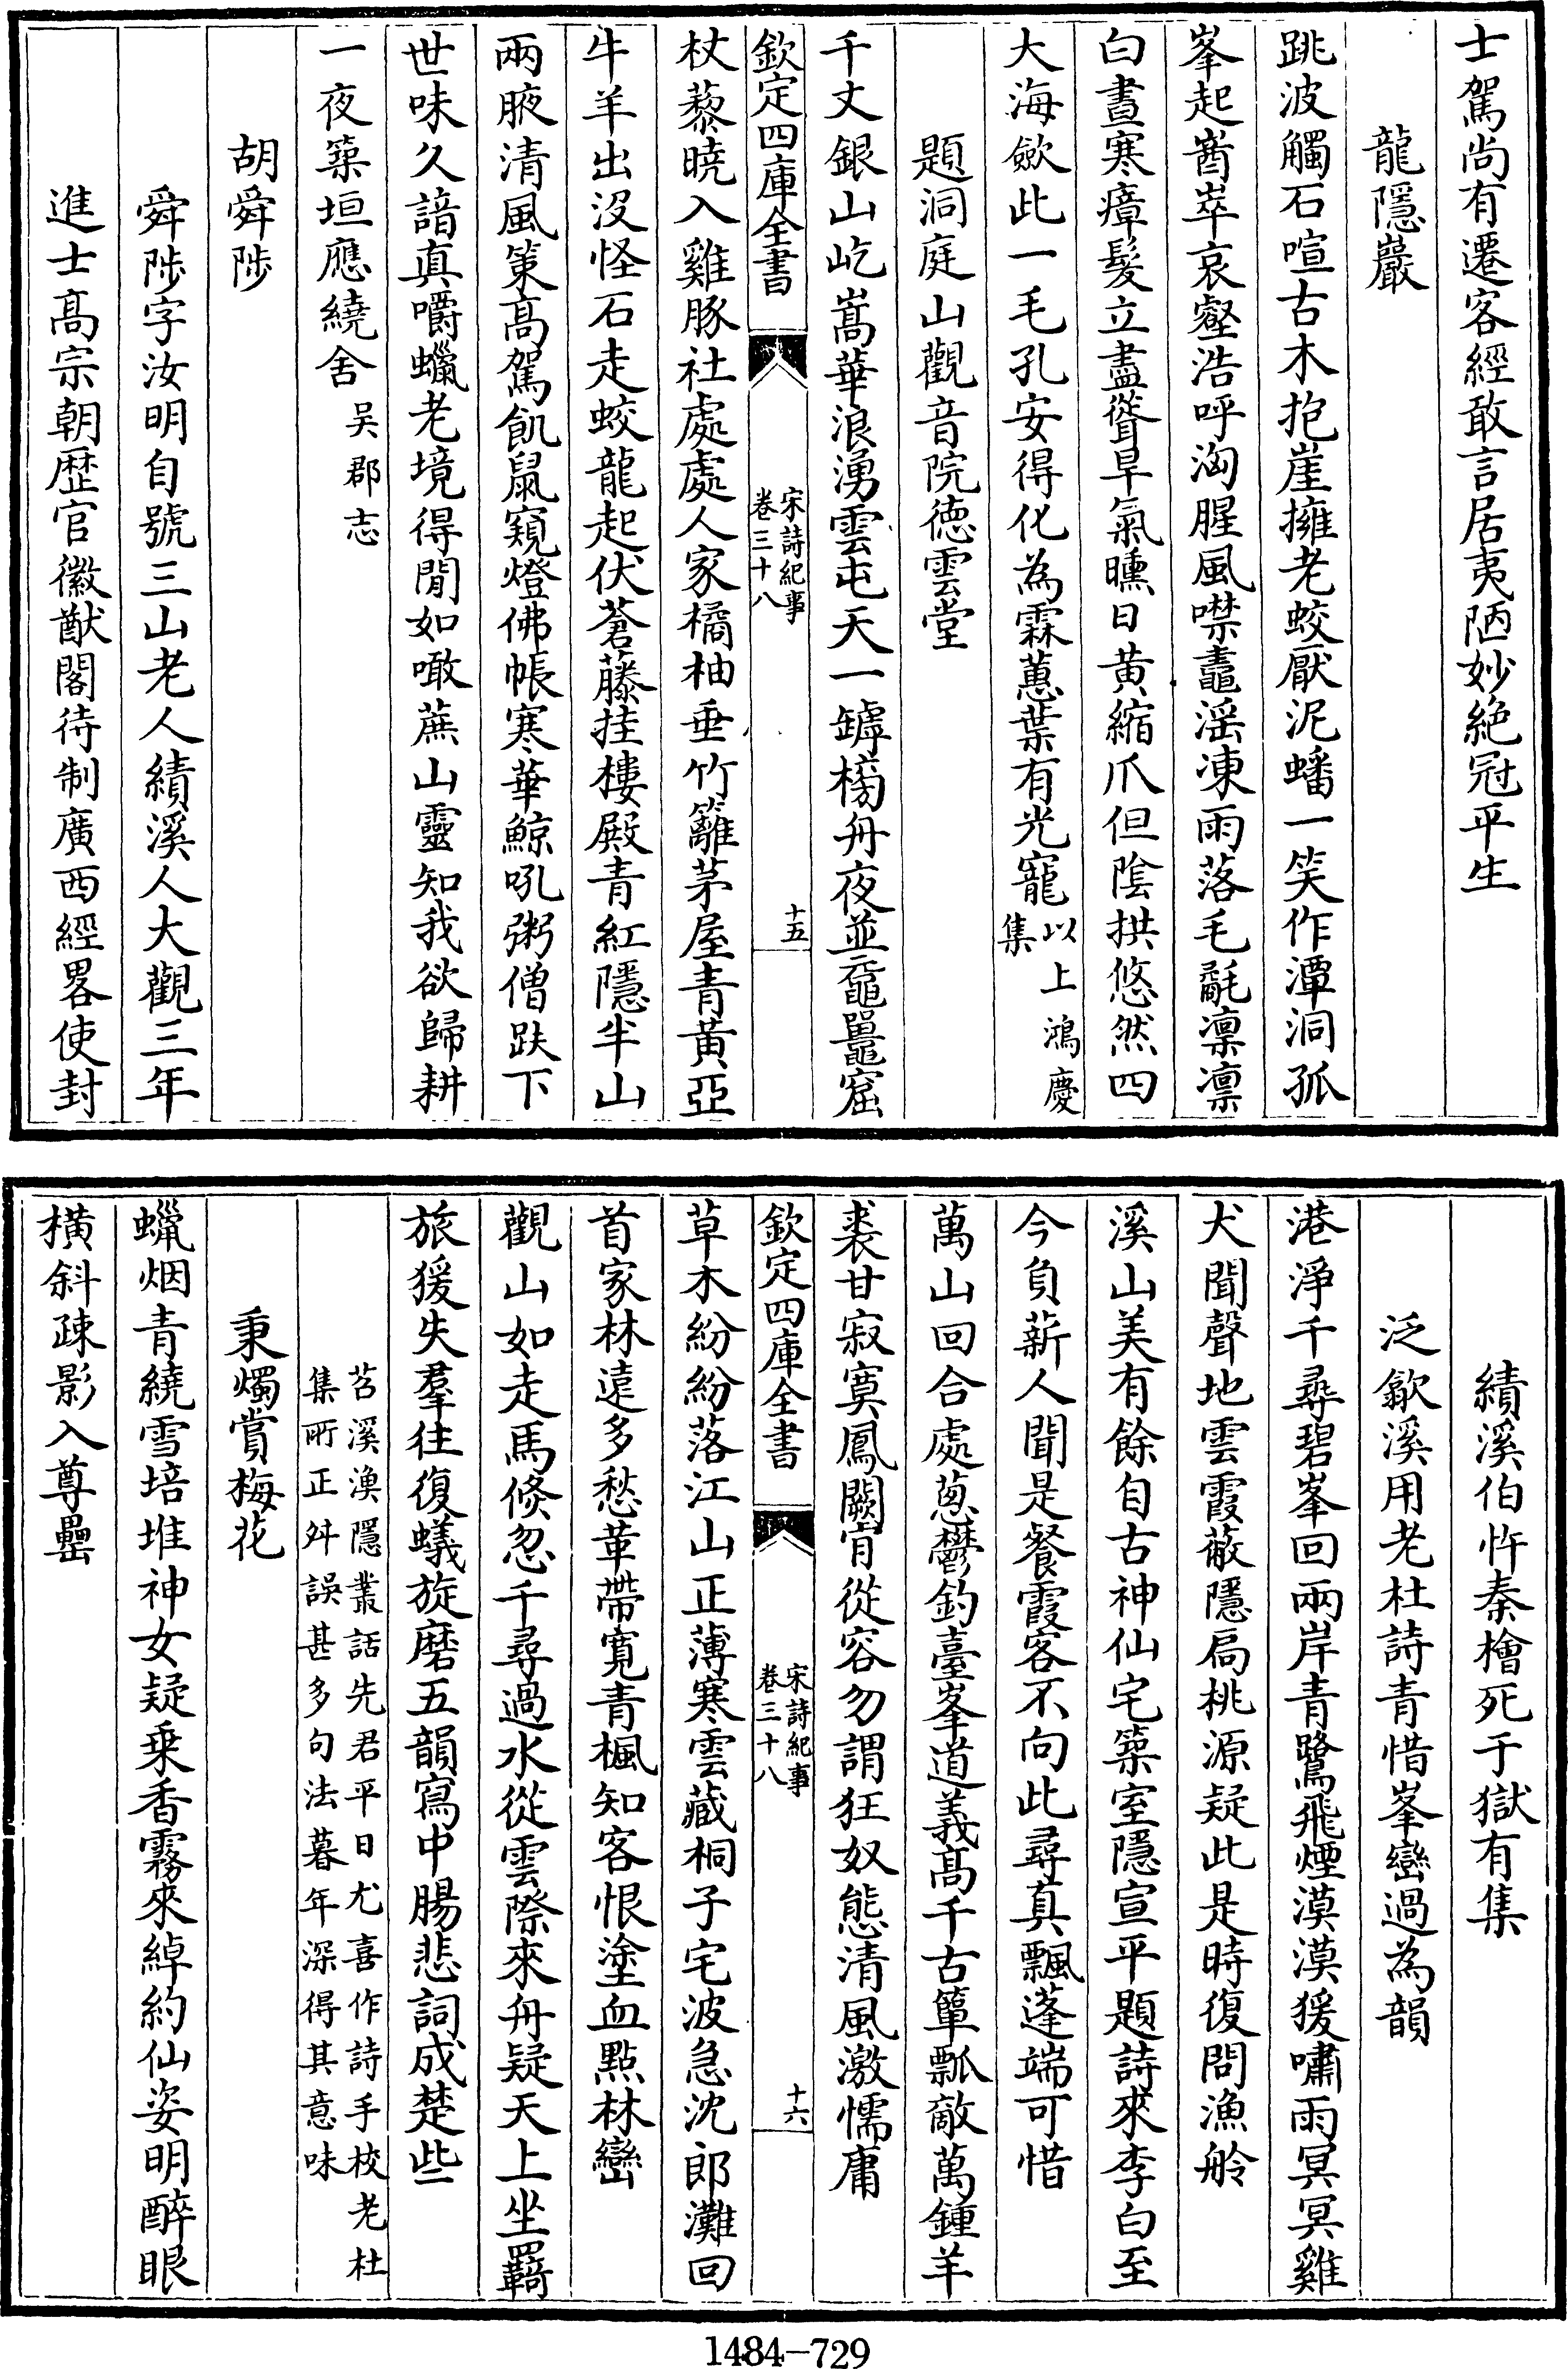 士駕尚有遷客經敢言居夷陋妙絶冠平生
龍隱巖
跳波觸石喧古木抱崖擁老蛟厭泥蟠一笑作潭洞孤
峯起崷崒哀壑浩呼洶腥風噤鼃淫凍雨落毛氄凛凛
白晝寒瘴髮立盡聳旱氣曛日黄縮爪但陰拱悠然四
大海歛此一毛孔安得化為霖蕙葉有光寵以上鴻慶
集
題洞庭山觀音院德雲堂
千丈銀山屹嵩華浪湧雲屯天一罅榜舟夜並黿鼉窟
欽定四庫全書
宋詩紀事
卷三十八
十五
杖藜曉入雞豚社處處人家橘柚垂竹籬茅屋青黄亞
牛羊出沒怪石走蛟龍起伏蒼藤挂樓殿青紅隱半山
兩腋清風策高駕飢鼠窺燈佛帳寒華鯨吼粥僧趺下
世味久諳真嚼蠟老境得閒如噉蔗山靈知我欲歸耕
一夜築垣應繞舍吴郡志
胡舜陟
舜陟字汝明自號三山老人績溪人大觀三年
進士高宗朝歴官徽猷閣待制廣西經畧使封
績溪伯忤秦檜死于獄有集
泛歙溪用老杜詩青惜峯巒過為韻
港淨千尋碧峯回兩岸青鷺飛煙漠漠猨嘯雨冥冥雞
犬聞聲地雲霞蔽隱扃桃源疑此是時復問漁舲
溪山美有餘自古神仙宅築室隱宣平題詩來李白至
今負薪人聞是餐霞客不向此尋真飄蓬端可惜
萬山回合處蔥鬱釣臺峯道義高千古簞瓢敵萬鍾羊
裘甘寂寞鳳闕肎從容勿謂狂奴態清風激懦庸
欽定四庫全書
宋詩紀事
卷三十八
十六
草木紛紛落江山正薄寒雲藏桐子宅波急沈郎灘回
首家林遠多愁革帶寛青楓知客恨塗血點林巒
觀山如走馬倏忽千尋過水從雲際來舟疑天上坐羇
旅猨失羣往復蟻旋磨五韻寫中腸悲詞成楚些
苕溪漁隱叢話先君平日尤喜作詩手校老杜
集所正舛誤甚多句法暮年深得其意味
秉燭賞梅花
蠟烟青繞雪培堆神女疑乗香霧來綽約仙姿明醉眼
橫斜疎影入尊罍
1484–729